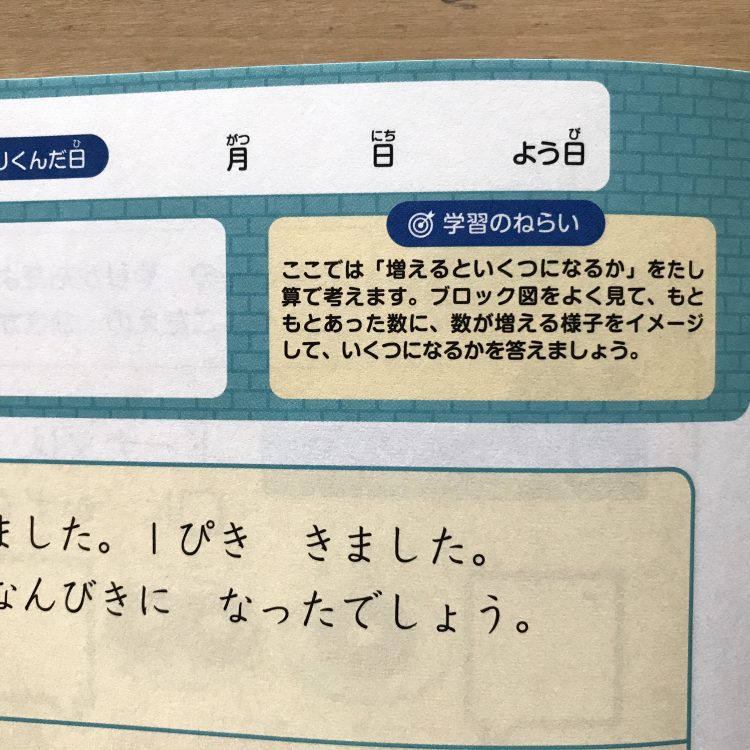 りくんだ日 月 日 よう日
学習のねらい
ここでは「増えるといくつになるか」をたし
算で考えます。ブロック図をよく見て、もと
もとあった数に、数が増える様子をイメージ
して、いくつになるかを答えましょう。
ました。1ぴき きました。
なんびきに なったでしょう。